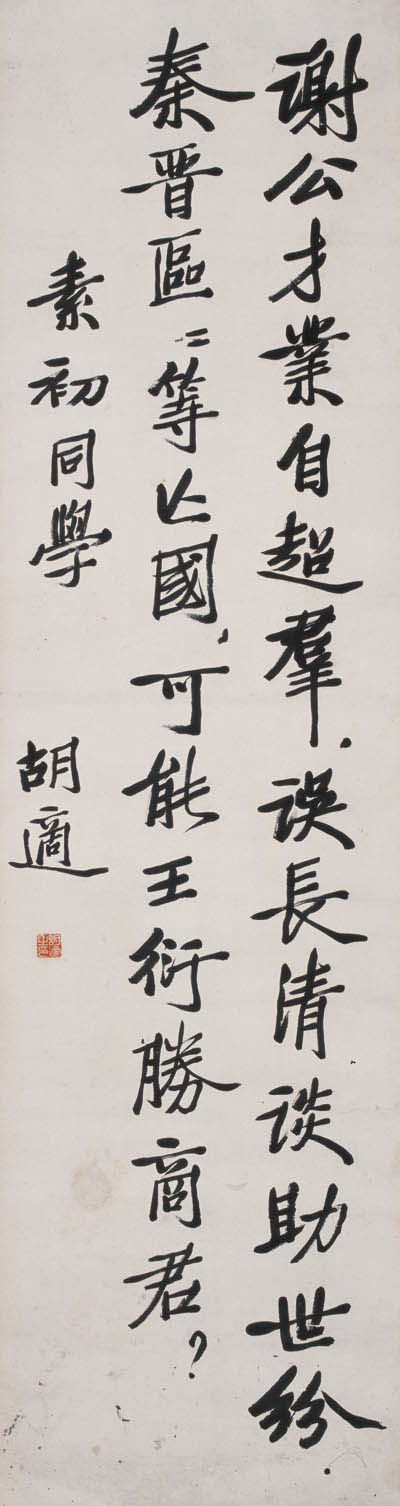 謝公才業自超羣.誤長清談助世紛.
秦晋區〻等亾國、可能王衍勝商君?
素初同學
胡適